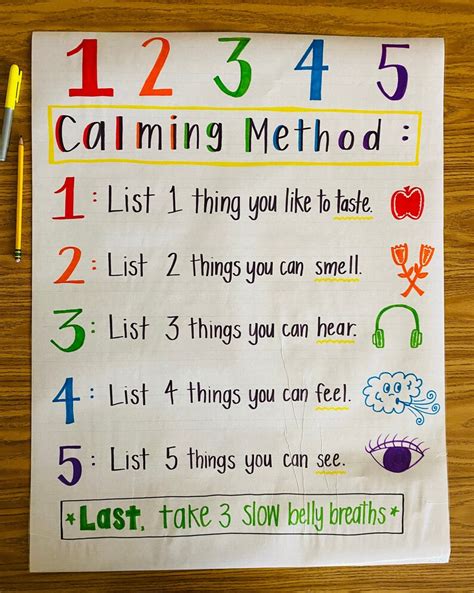 1 2 3 4 5
Calming Method :
1 : List 1 thing you like to taste.
2 : List 2 things you can smell.
3 : List 3 things you can hear.
4 : List 4 things you can feel.
5 : List 5 things you can see.
*Last, take 3 slow belly breaths*